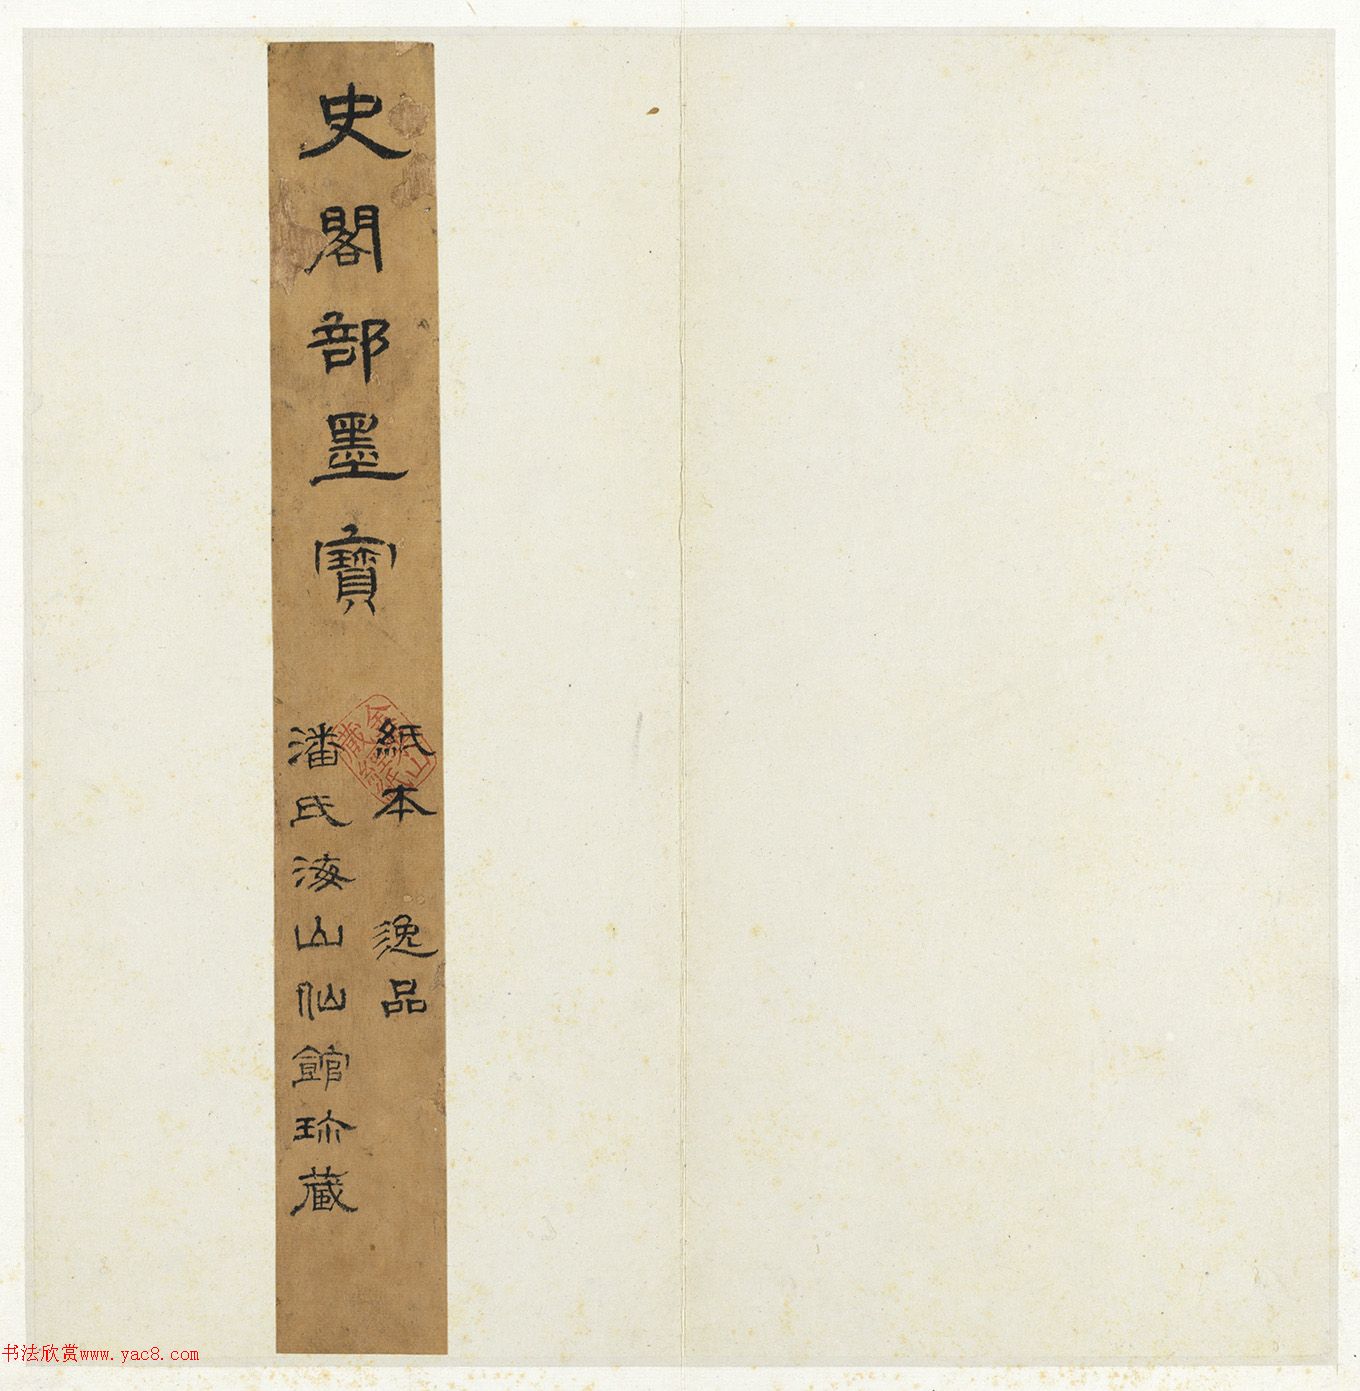 史閣部墨寶
紙本 逸品
潘氏海山仙館珎藏
金粟山藏經紙
书法欣赏www.yac8.com